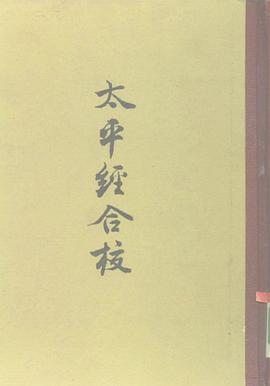 太平經合校